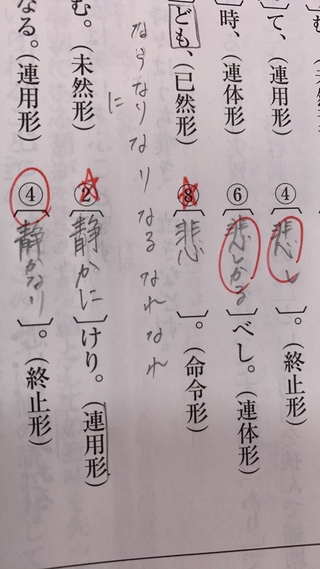 む
て、(連用形)
④〔悲し〕。(終止形)
時、(連体形)
⑥〔悲しかる〕べし。(連体形)
ども、(已然形)
⑧〔悲〕。(命令形)
なり なり なる なれ なれ
に
む。(未然形)
②〔静かに〕けり。(連用形)
なる。(連用形)
④〔静かなり〕。(終止形)